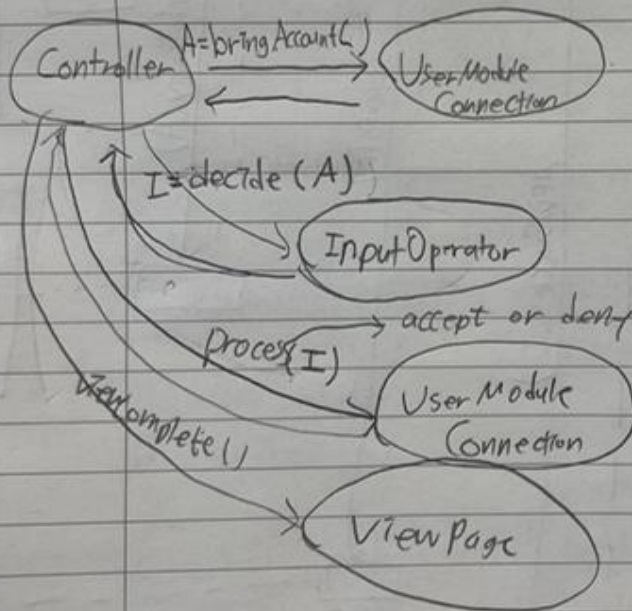 Controller
A=bringAccount()
UserModule
Connection
I=decide(A)
InputOprator
Process(I)
accept or deny
User Module
Connection
ViewComplete()
View Page